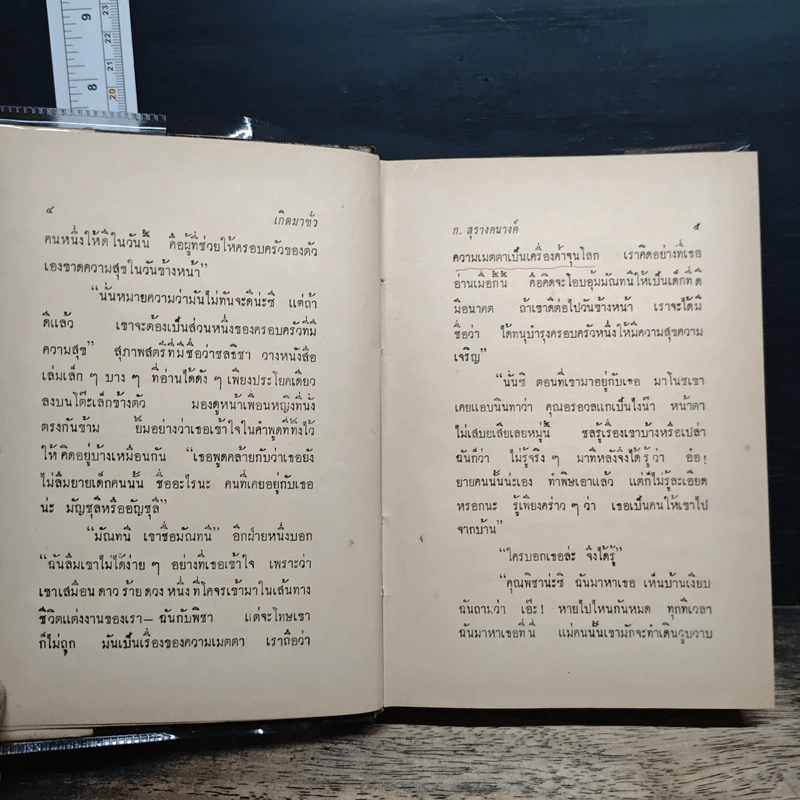 9
8
23
22
21
20
๔
เกิดมาชั่ว
คนหนึ่งให้ดีในวันนี้ คือผู้ที่ช่วยให้ครอบครัวของตัว
เองขาดความสุขในวันข้างหน้า”
“นั่นหมายความว่ามันไม่ทันจะดีน่ะซี แต่ถ้า
ดีแล้ว เขาจะต้องเป็นส่วนหนึ่งของครอบครัวที่มี
ความสุข” สุภาพสตรีที่มีชื่อว่าชลธิชา วางหนังสือ
เล่มเล็ก ๆ บาง ๆ ที่อ่านได้ดัง ๆ เพียงประโยคเดียว
ลงบนโต๊ะเล็กข้างตัว มองดูหน้าเพื่อนหญิงที่นั่ง
ตรงกันข้าม ยิ้มอย่างว่าเธอเข้าใจในคำพูดที่ทิ้งไว้
ให้คิดอยู่บ้างเหมือนกัน “เธอพูดคล้ายกับว่าเธอยัง
ไม่ลืมยายเด็กคนนั้น ชื่ออะไรนะ คนที่เคยอยู่กับเธอ
น่ะ มัญชุลีหรืออัญชุลี”
“มัณทนี เขาชื่อมัณทนี” อีกฝ่ายหนึ่งบอก
“ฉันลืมเขาไม่ได้ง่าย ๆ อย่างที่เธอเข้าใจ เพราะว่า
เขาเสมือนดาวร้ายดวงหนึ่งที่โคจรเข้ามาในเส้นทาง
ชีวิตแต่งงานของเรา—ฉันกับพิชา แต่จะโทษเขา
ก็ไม่ถูก มันเป็นเรื่องของความเมตตา เราถือว่า
ก. สุรางคนางค์
๕
ความเมตตาเป็นเครื่องค้ำจุนโลก เราคิดอย่างที่เธอ
อ่านเมื่อกี้นี้ คือคิดจะโอบอุ้มมัณทนีให้เป็นเด็กที่ดี
มีอนาคต ถ้าเขาดีต่อไปวันข้างหน้า เราจะได้มี
ชื่อว่า ได้ทนุบำรุงครอบครัวหนึ่งให้มีความสุขความ
เจริญ”
“นั่นซิ ตอนที่เขามาอยู่กับเธอ มาโนชเขา
เคยแอบนินทาว่า คุณอรอวลแกเป็นไงน๊า หน้าตา
ไม่เสบยเสียเลยหมู่นี้ ชลรู้เรื่องเขาบ้างหรือเปล่า
ฉันก็ว่า ไม่รู้จริง ๆ มาทีหลังจึงได้รู้ว่า อ๋อ!
ยายคนนั้นน่ะเอง ทำพิษเอาแล้ว แต่ก็ไม่รู้ละเอียด
หรอกนะ รู้เพียงคร่าว ๆ ว่า เธอเป็นคนให้เขาไป
จากบ้าน”
“ใครบอกเธอล่ะ จึงได้รู้”
“คุณพิชาน่ะซิ ฉันมาหาเธอ เห็นบ้านเงียบ
ฉันถามว่า เอ๊ะ! หายไปไหนกันหมด ทุกทีเวลา
ฉันมาหาเธอที่นี่ แม่คนนั้นเขามักจะทำเดินวูบวาบ